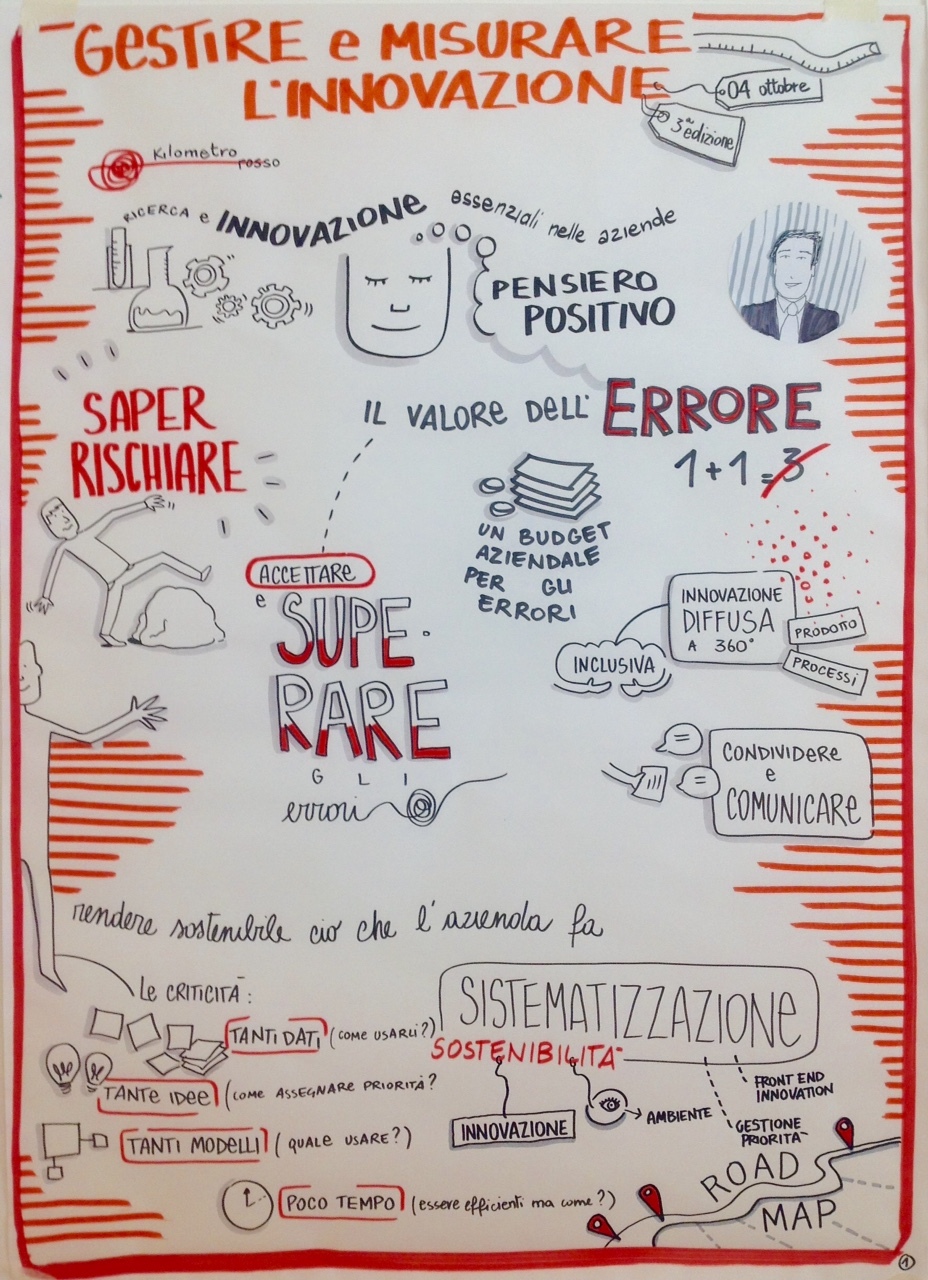 GESTIRE e MISURARE
L'INNOVAZIONE
04 ottobre
3ª edizione
Kilometro
rosso
RICERCA e INNOVAZIONE essenziali nelle aziende
PENSIERO
POSITIVO
SAPER
RISCHIARE
IL VALORE DELL'ERRORE
1+1=3
UN BUDGET
AZIENDALE
PER GLI
ERRORI
ACCETTARE
e
SUPE-
RARE
GLI
errori
INNOVAZIONE
DIFFUSA
A 360°
PRODOTTO
PROCESSI
INCLUSIVA
CONDIVIDERE
e
COMUNICARE
rendere sostenibile ciò che l'azienda fa
Le CRITICITÀ:
TANTI DATI (COME USARLI?)
TANTE IDEE (COME ASSEGNARE PRIORITÀ?
TANTI MODELLI (QUALE USARE?)
POCO TEMPO (essere efficienti ma come?)
SISTEMATIZZAZIONE
SOSTENIBILITÀ
INNOVAZIONE
AMBIENTE
FRONT END
INNOVATION
GESTIONE
PRIORITÀ
ROAD
MAP
1